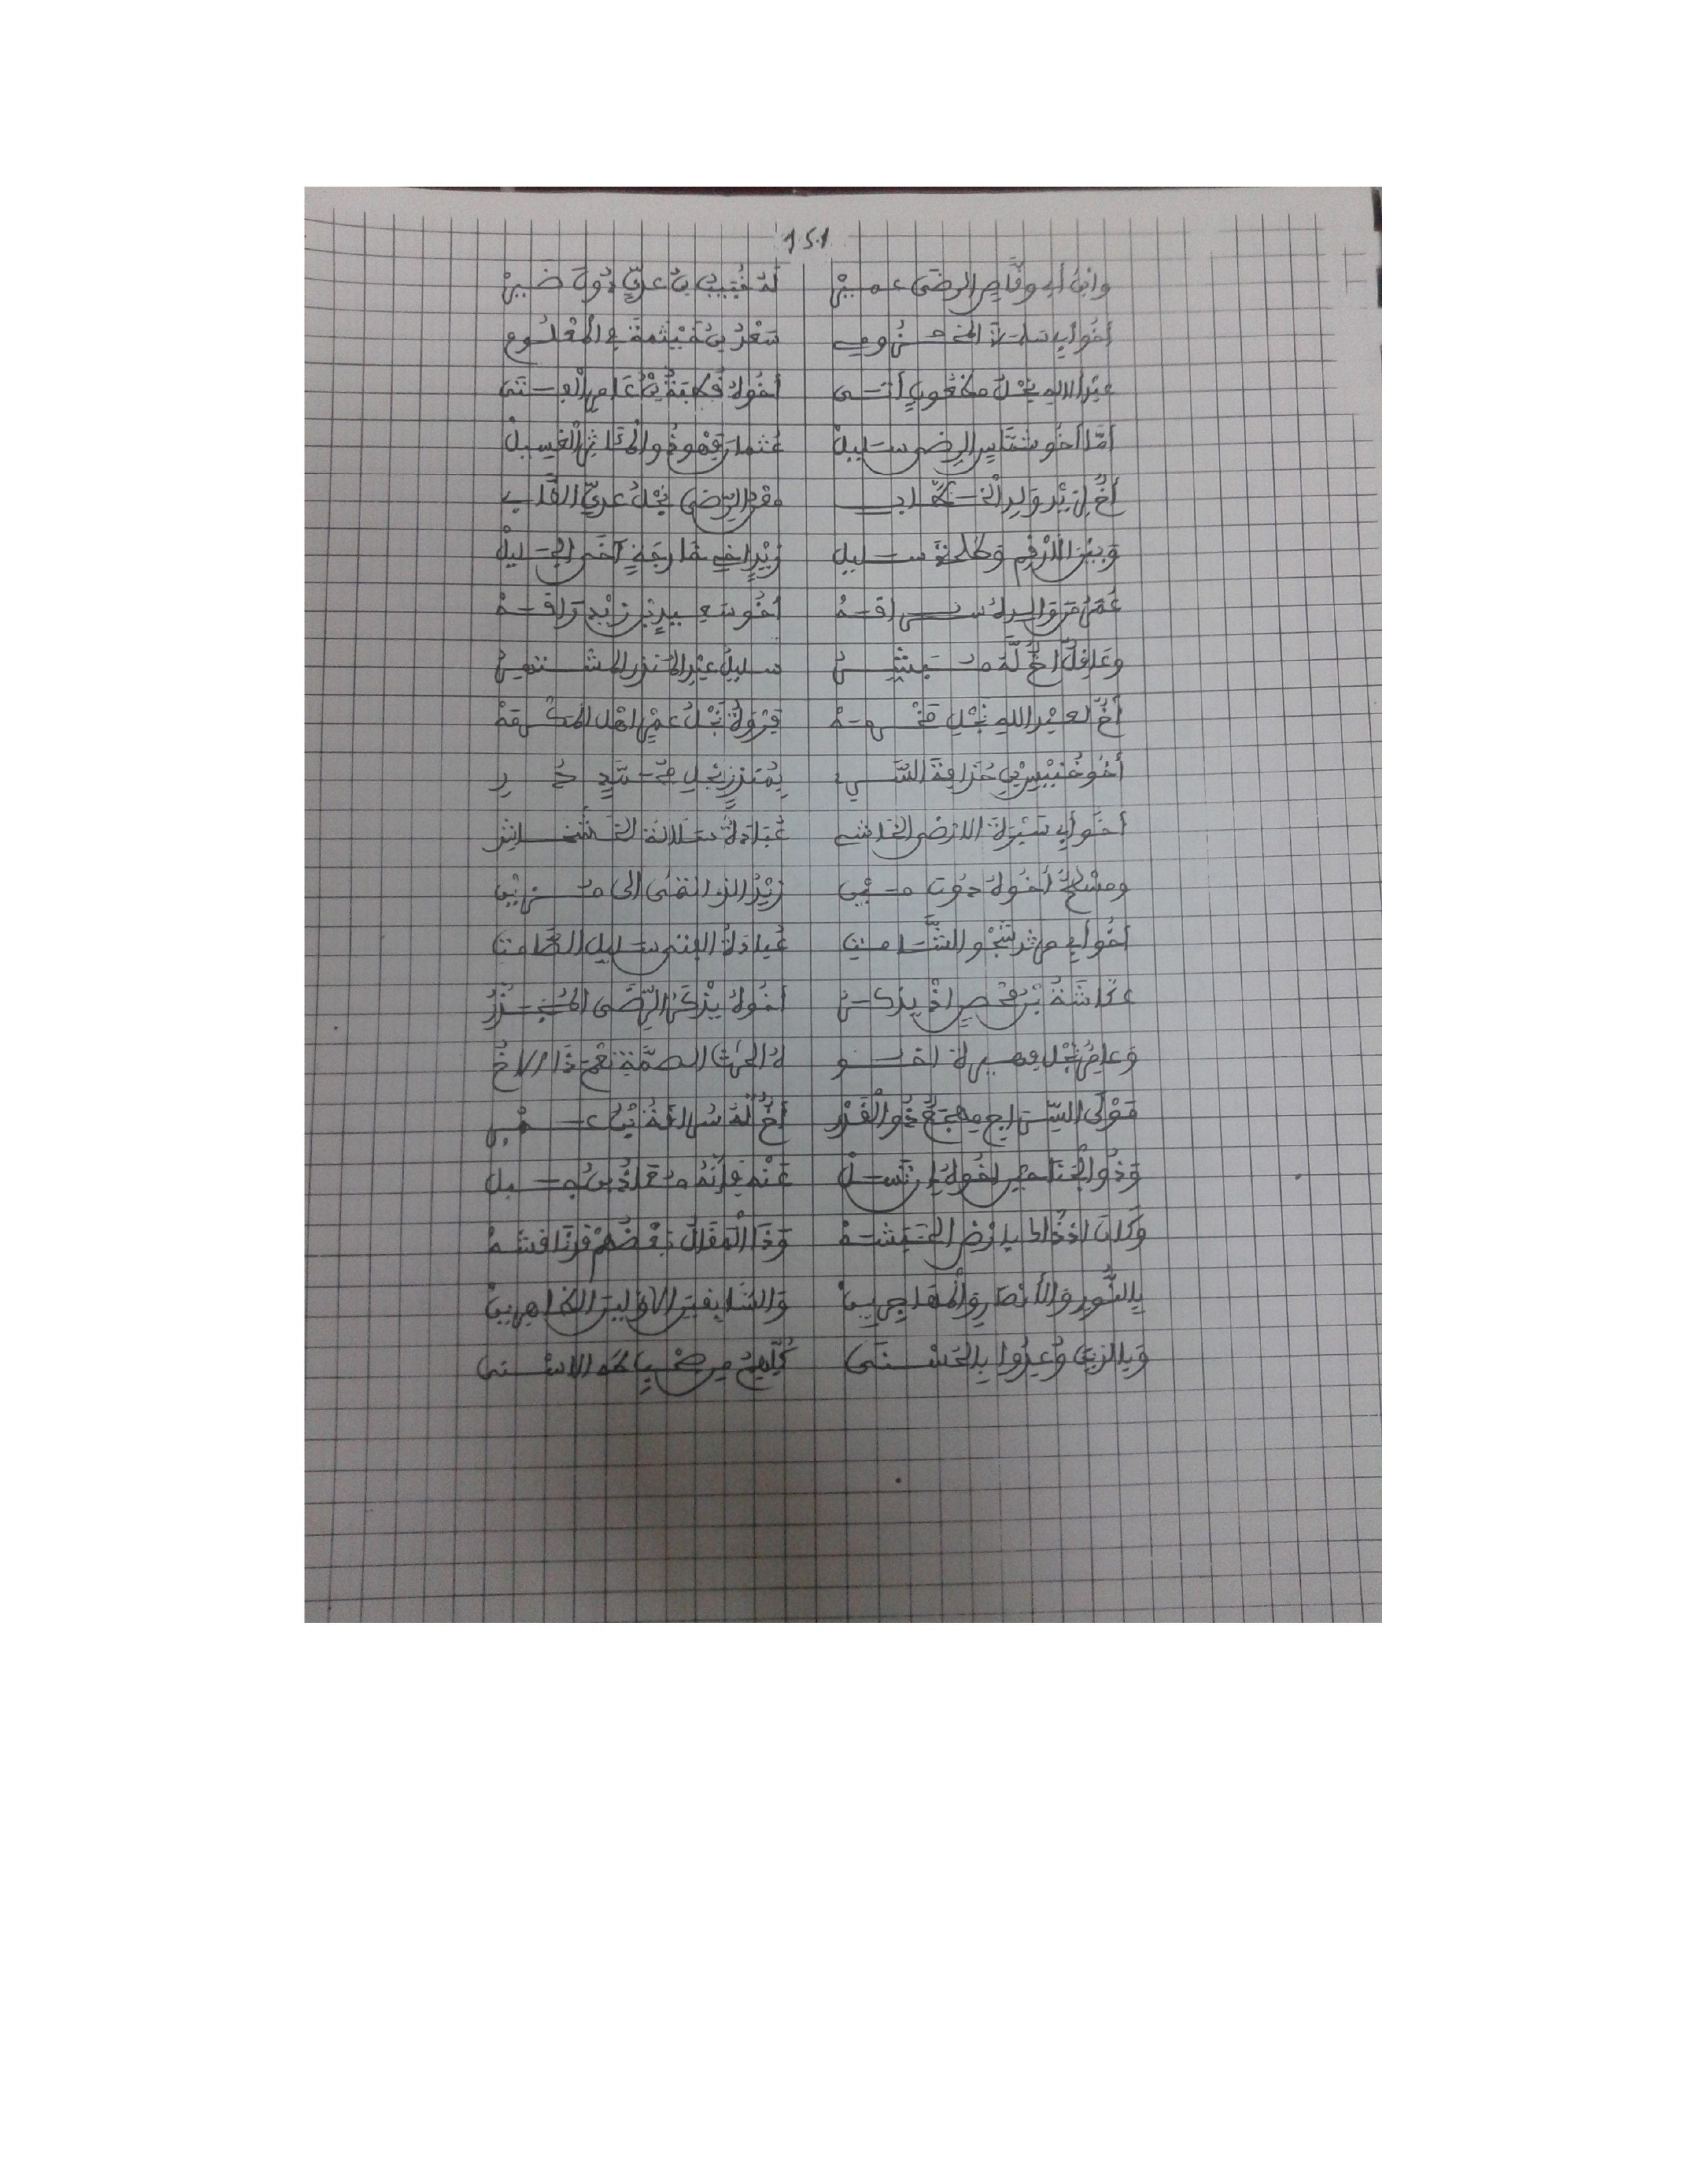 151
وابن أبي وقاص الرضى عميرْ له خبيب بن عدي دون ضيرْ
أخو أبي سلمة المخزومي سعد بن خيثمة في المعلوم
عبد الاله نجل مظعون أتى أخوه قطبة بن عامر الفتى
أما أخو شماس الرضى سليلْ عثمان فهو ذو الحنظلة الغسيلْ
أخ لزيد ولد الخطاب معن الرضى نجل عدي
وبين الأرقم وطلحة سليل زيد أخي خارجة الجليل
عمرو والده سراقه أخو سعيد بن زيد راقه
وعاقل أخ له مبشر سليل عبد المنذر المشتهر
أخ لعبد الله نجل مخرمه فروة نجل عمرو أهل المكرمه
أخو خنيس بن حذافة السري منذر نجل محمد حر
أخو أبي سبرة الأرضى عبادة سلالة الخشخاش
ومسطح أخوه دون مين زيد الذي انتمى إلى مزين
أخو أبي مرثد نجو الثامت عبادة المنتمي سليل الصامت
عكاشة بن محصن إذ يذكر أخوه يذكر الرضى المجذر
وعامر نجل فهيرة أخو له الحرث الصمة نعم ذا الاخ
مولى السري مهجع ذو القدر أخ له سراقة بن عمرو
وذو الجناحين أخوه إن تسل عنه فإنه معاذ بن جبل
وكان إذ ذاك بأرض الحبشه وذا المقال بعضهم قد ناقشه
بالنور والأنصار والمهاجرين والسابقين الأولين الطاهرين
وبالذين وعدوا بالحسنى كلهم من الأسنى